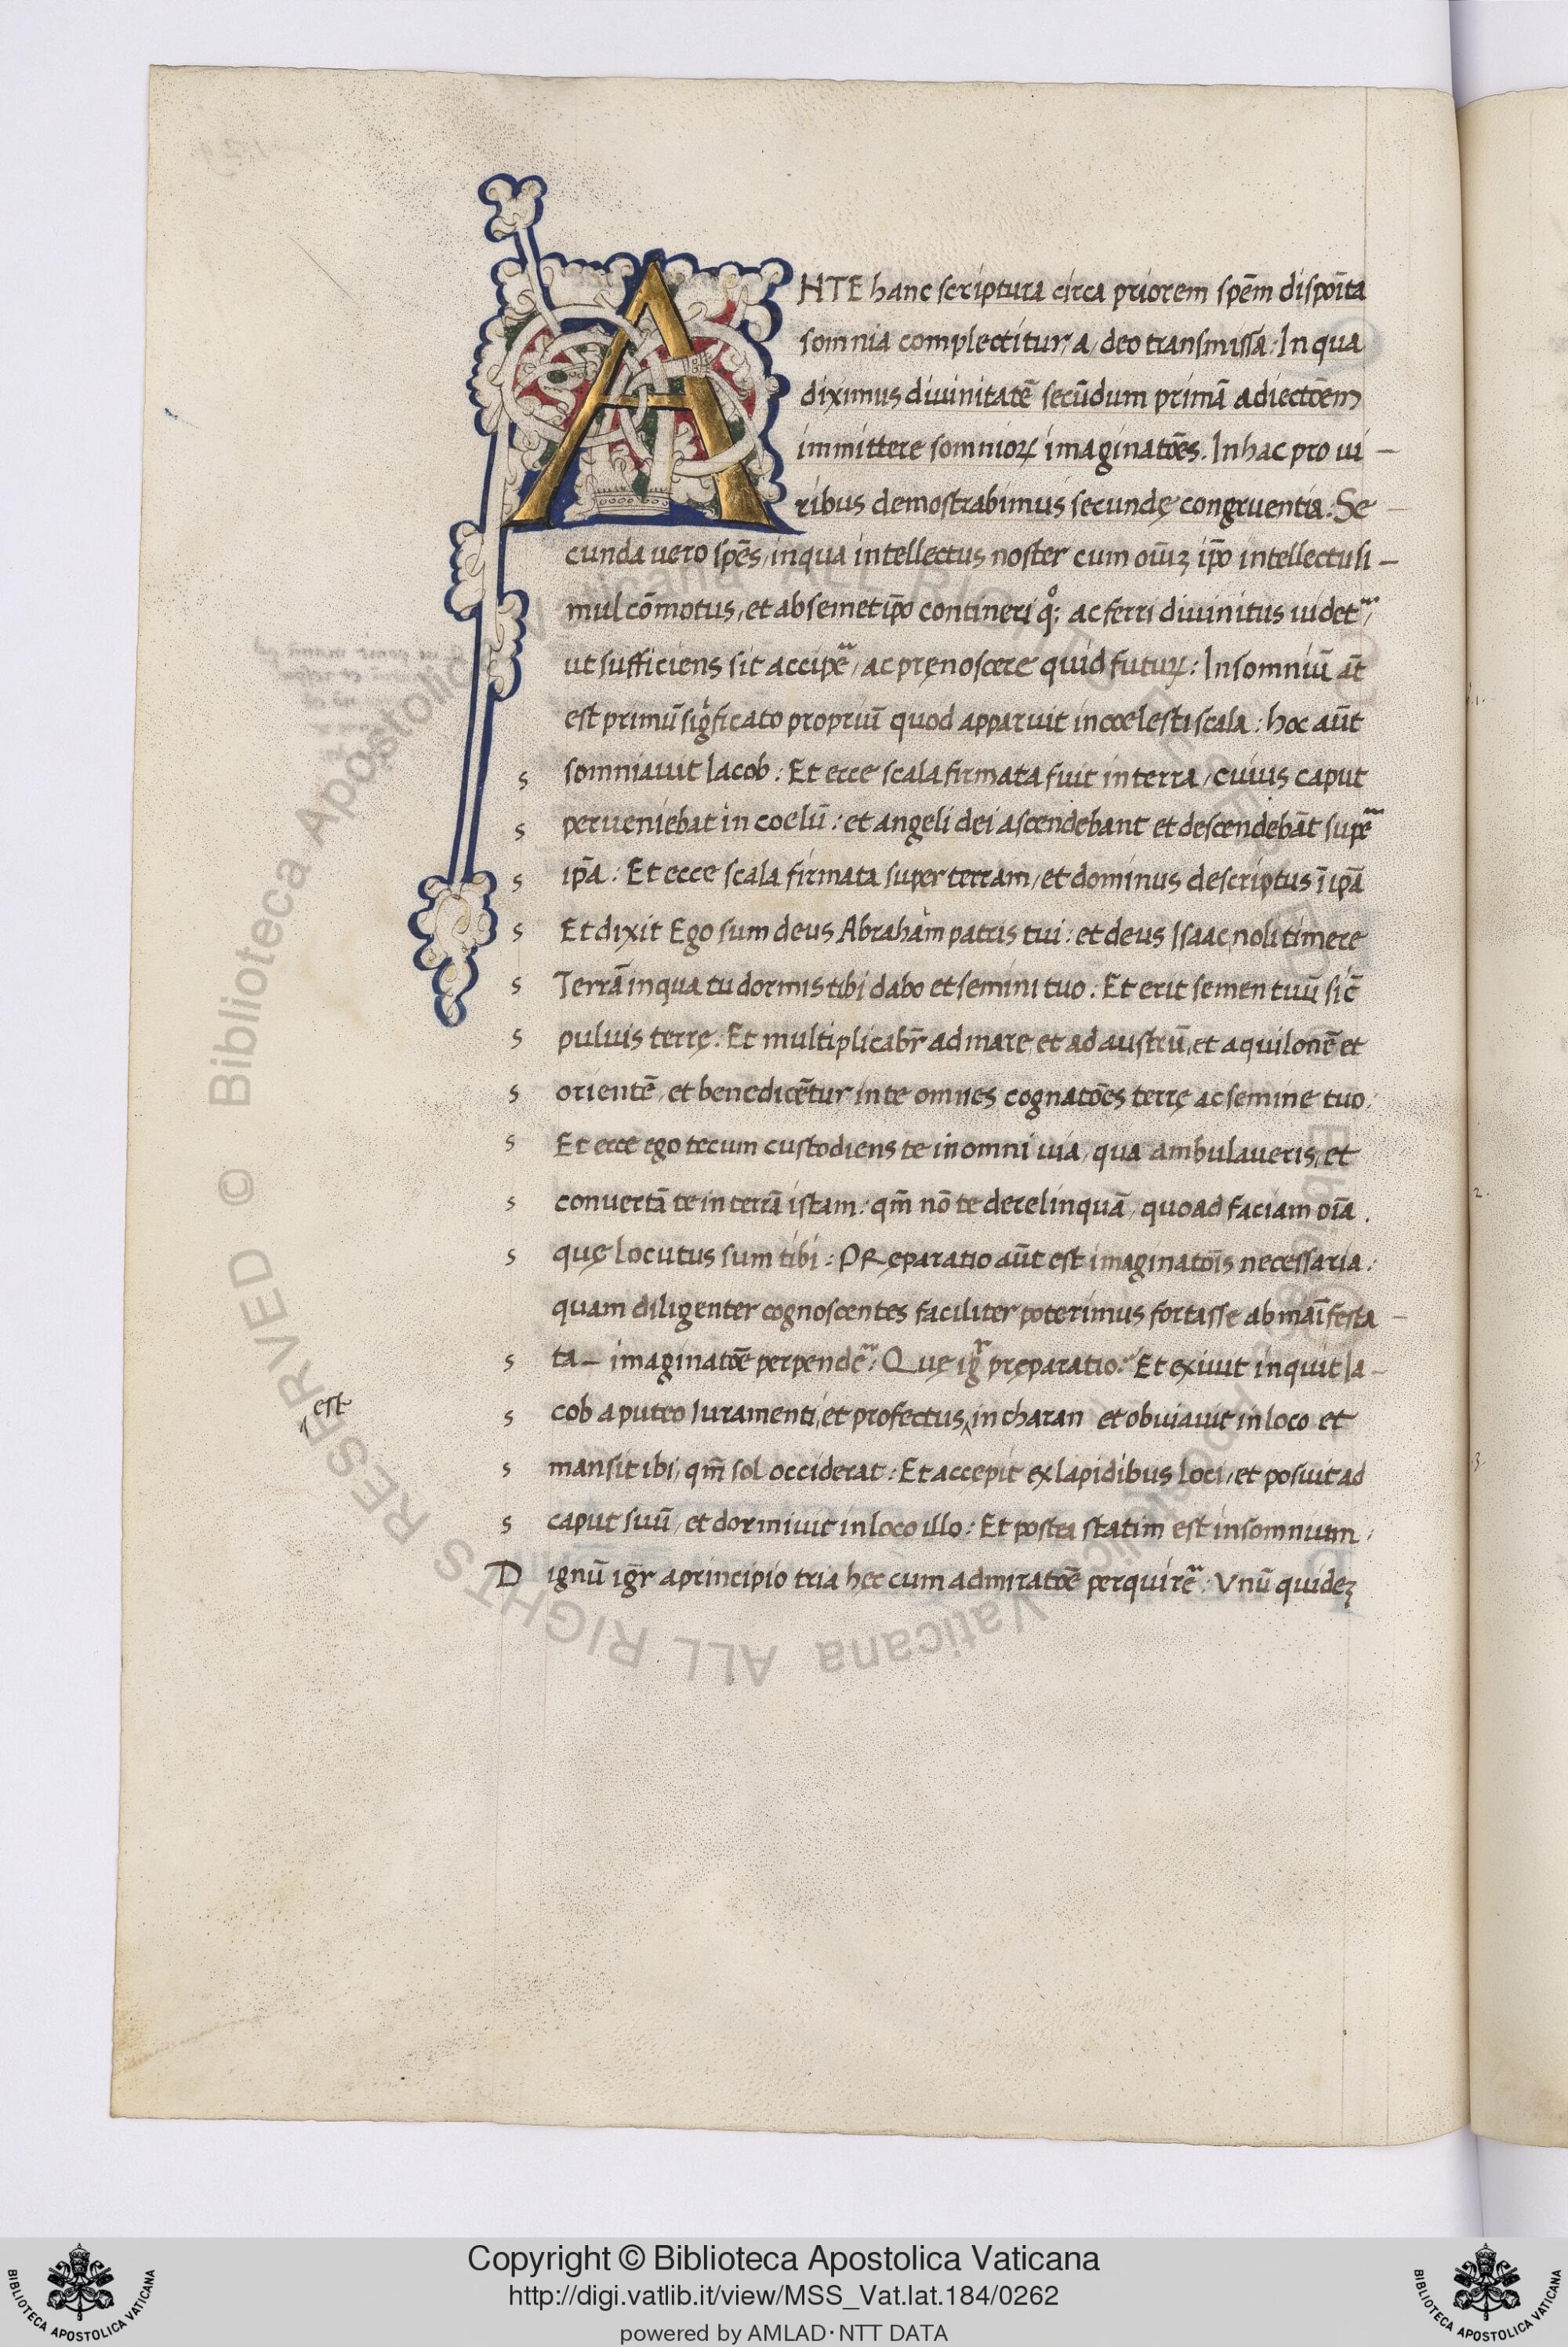 ANTE hanc scriptura circa priorem spēm dispoīta
somnia complectitur, a, deo transmissa: In qua
diximus diuinitatē secūdum primā adiectōem
immittere somnioꝝ imaginatōes. In hac pro ui –
ribus demostrabimus secundę congruentia: Se –
cunda uero spēs, in qua intellectus noster cum oūiȝ ip̄o intellectu si –
mul cōmotus, et ab semetip̄o contineri qͦꝫ ac ferri diuinitus uidet᷑,
ut sufficiens sit accipe᷑, ac pręnoscere quid futuꝝ: Insomniū āt
est primū sigͥficato propriū quod apparuit in coelesti scala: hoc aūt
s somniauit Iacob: Et ecce scala firmata fuit in terra, cuius caput
s perueniebat in coelū: et angeli dei ascendebant et descendebāt supe᷑
s ip̄a: Et ecce scala firmata super terram, et dominus descriptus ī ip̄ā
s Et dixit Ego sum deus Abraham patris tui: et deus Isaac, noli timere
s Terrā in qua tu dormis tibi dabo et semini tuo: Et erit semen tuū sic̄
s puluis terrę: Et multiplicabr̄ ad mare, et ad austrū, et aquilonē et
s orientē, et benedicētur in te omnes cognatōes terrę ac semine tuo:
s Et ecce ego tecum custodiens te in omni uia, qua ambulaueris, et
s conuertā te in terrā istam: qm̄ nō te derelinquā, quoad faciam oīa.
s quę locutus sum tibi: PRęparatio aūt est imaginatōis necessaria:
quam diligenter cognoscentes faciliter poterimus fortasse ab maīfesta –
s ta – imaginatōe perpende᷑: Quę igr̄ pręparatio: Et exiuit inquit Ia –
est
s cob a puteo Iuramenti, et profectus ‸ in charan et obuiauit in loco et
s mansit ibi, qm̄ sol occiderat: Et accepit ex lapidibus loci, et posuit ad
s caput suū, et dormiuit in loco illo: Et postea statim est insomnium,
Dignū igr̄ a principio tria hec cum admiratōe perquire᷑: Vnū quideȝ
© Biblioteca Apostolica Vaticana ALL RIGHTS RESERVED
Copyright © Biblioteca Apostolica Vaticana
http://digi.vatlib.it/view/MSS_Vat.lat.184/0262
powered by AMLAD·NTT DATA
BIBLIOTECA APOSTOLICA VATICANA
BIBLIOTECA APOSTOLICA VATICANA